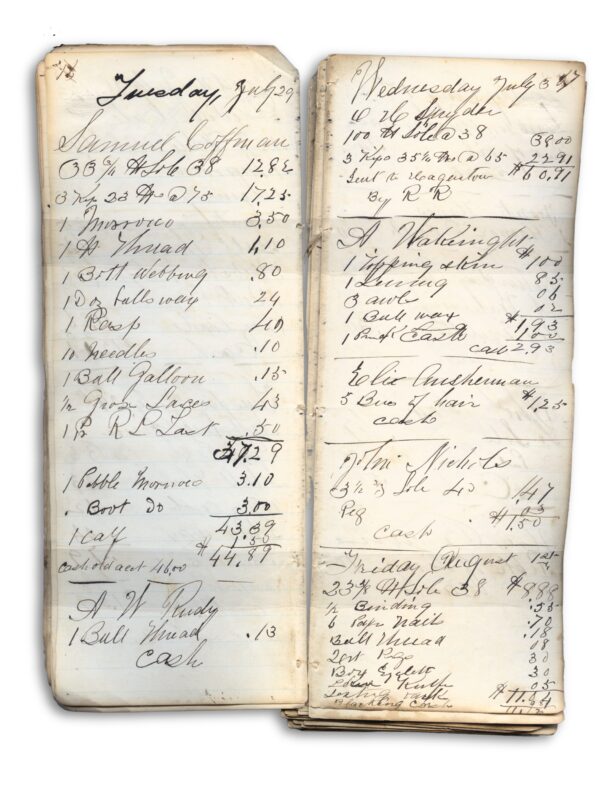 Tuesday, July 29
Samuel Coffman
33 3/4 # Sole 38 12.82
3 Kip 23 #s @ 75 17.25
1 Morroco 3.50
1 # Thread 1.10
1 Bolt Webbing .80
1 Doz balls wax 24
1 Rasp 40
10 Needles .10
1 Ball Galloon .15
1/2 Gross Laces 43
1 Pr R L Last .50
37.29
1 Pebble Morroco 3.10
" Boot Do 3.00
43.39
1 Calf 1.50
$ 44.89
Cash old acct 46.00
A W Rudy
1 Ball Thread .13
Cash
Wednesday July 30
Snyder
100 # Sole @ 38 38.00
3 Kips 35 1/4 #s @ 65 22.91
Sent to Hagerstow $60.91
By R R
A Wakinight
1 Topping skin $1.00
1 Lining 85
3 awls 06
1 Ball wax 02
$1.93
Cash 1.00
Cash 2.93
Elic Ausherman
5 Bus of hair $1.25
Cash
John Nichols
3 1/2 # Sole 40 1.47
Peg .03
Cash $1.50
Friday August 1st
23 3/8 # Sole 38 $8.88
1/2 Binding .55
6 Paps Nail .70
Ball Thread .18
2 qrt Pegs 08
Box Eyelets 30
Knife 30
05
$11.04